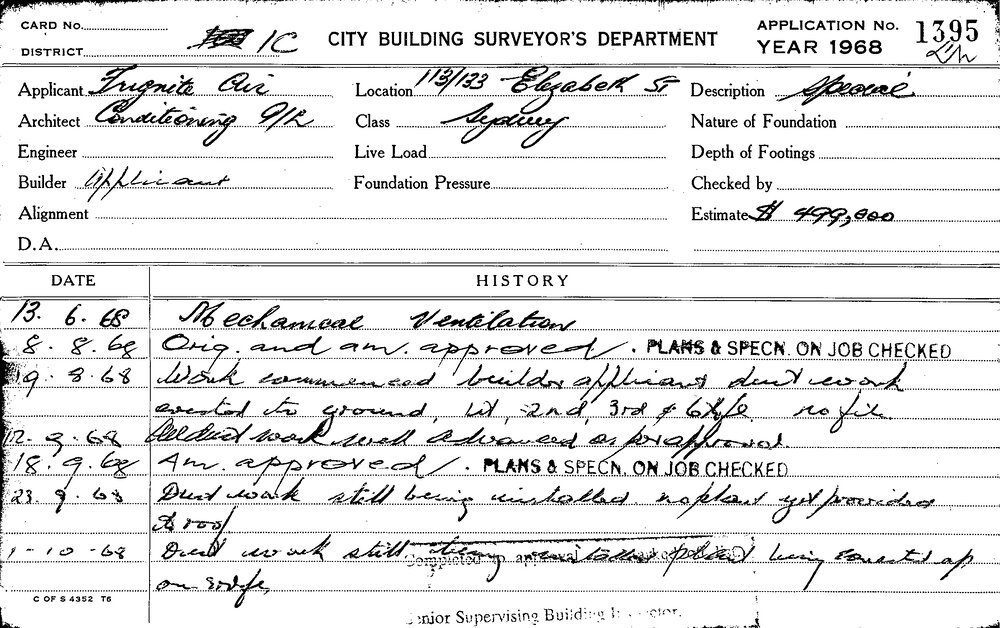 CARD No.
DISTRICT 1C
CITY BUILDING SURVEYOR'S DEPARTMENT
APPLICATION No. 1395
YEAR 1968
Applicant Frignite Air
Location 113/133 Elizabeth St
Description Special
Architect Conditioning P/L
Class Sydney
Nature of Foundation
Engineer
Live Load
Depth of Footings
Builder Applicant
Foundation Pressure
Checked by
Alignment
Estimate $ 499,000
D.A.
DATE HISTORY
13. 6. 68 Mechanical Ventilation
8. 8. 68 Orig. and am. approved. PLANS & SPECN. ON JOB CHECKED
19. 8. 68 Work commenced builder applicant duct work
erected to ground, 1st, 2nd, 3rd &
12. 9. 68 duct work well advanced as per approval.
18. 9. 68 Am. approved. PLANS & SPECN. ON JOB CHECKED
23. 9. 68 Duct work still being installed no plant yet provided
to roof
1-10-68 Duct work still being installed plant being erected
on
Completed approval
Senior Supervising Building Inspector.
C OF S 4352 T6